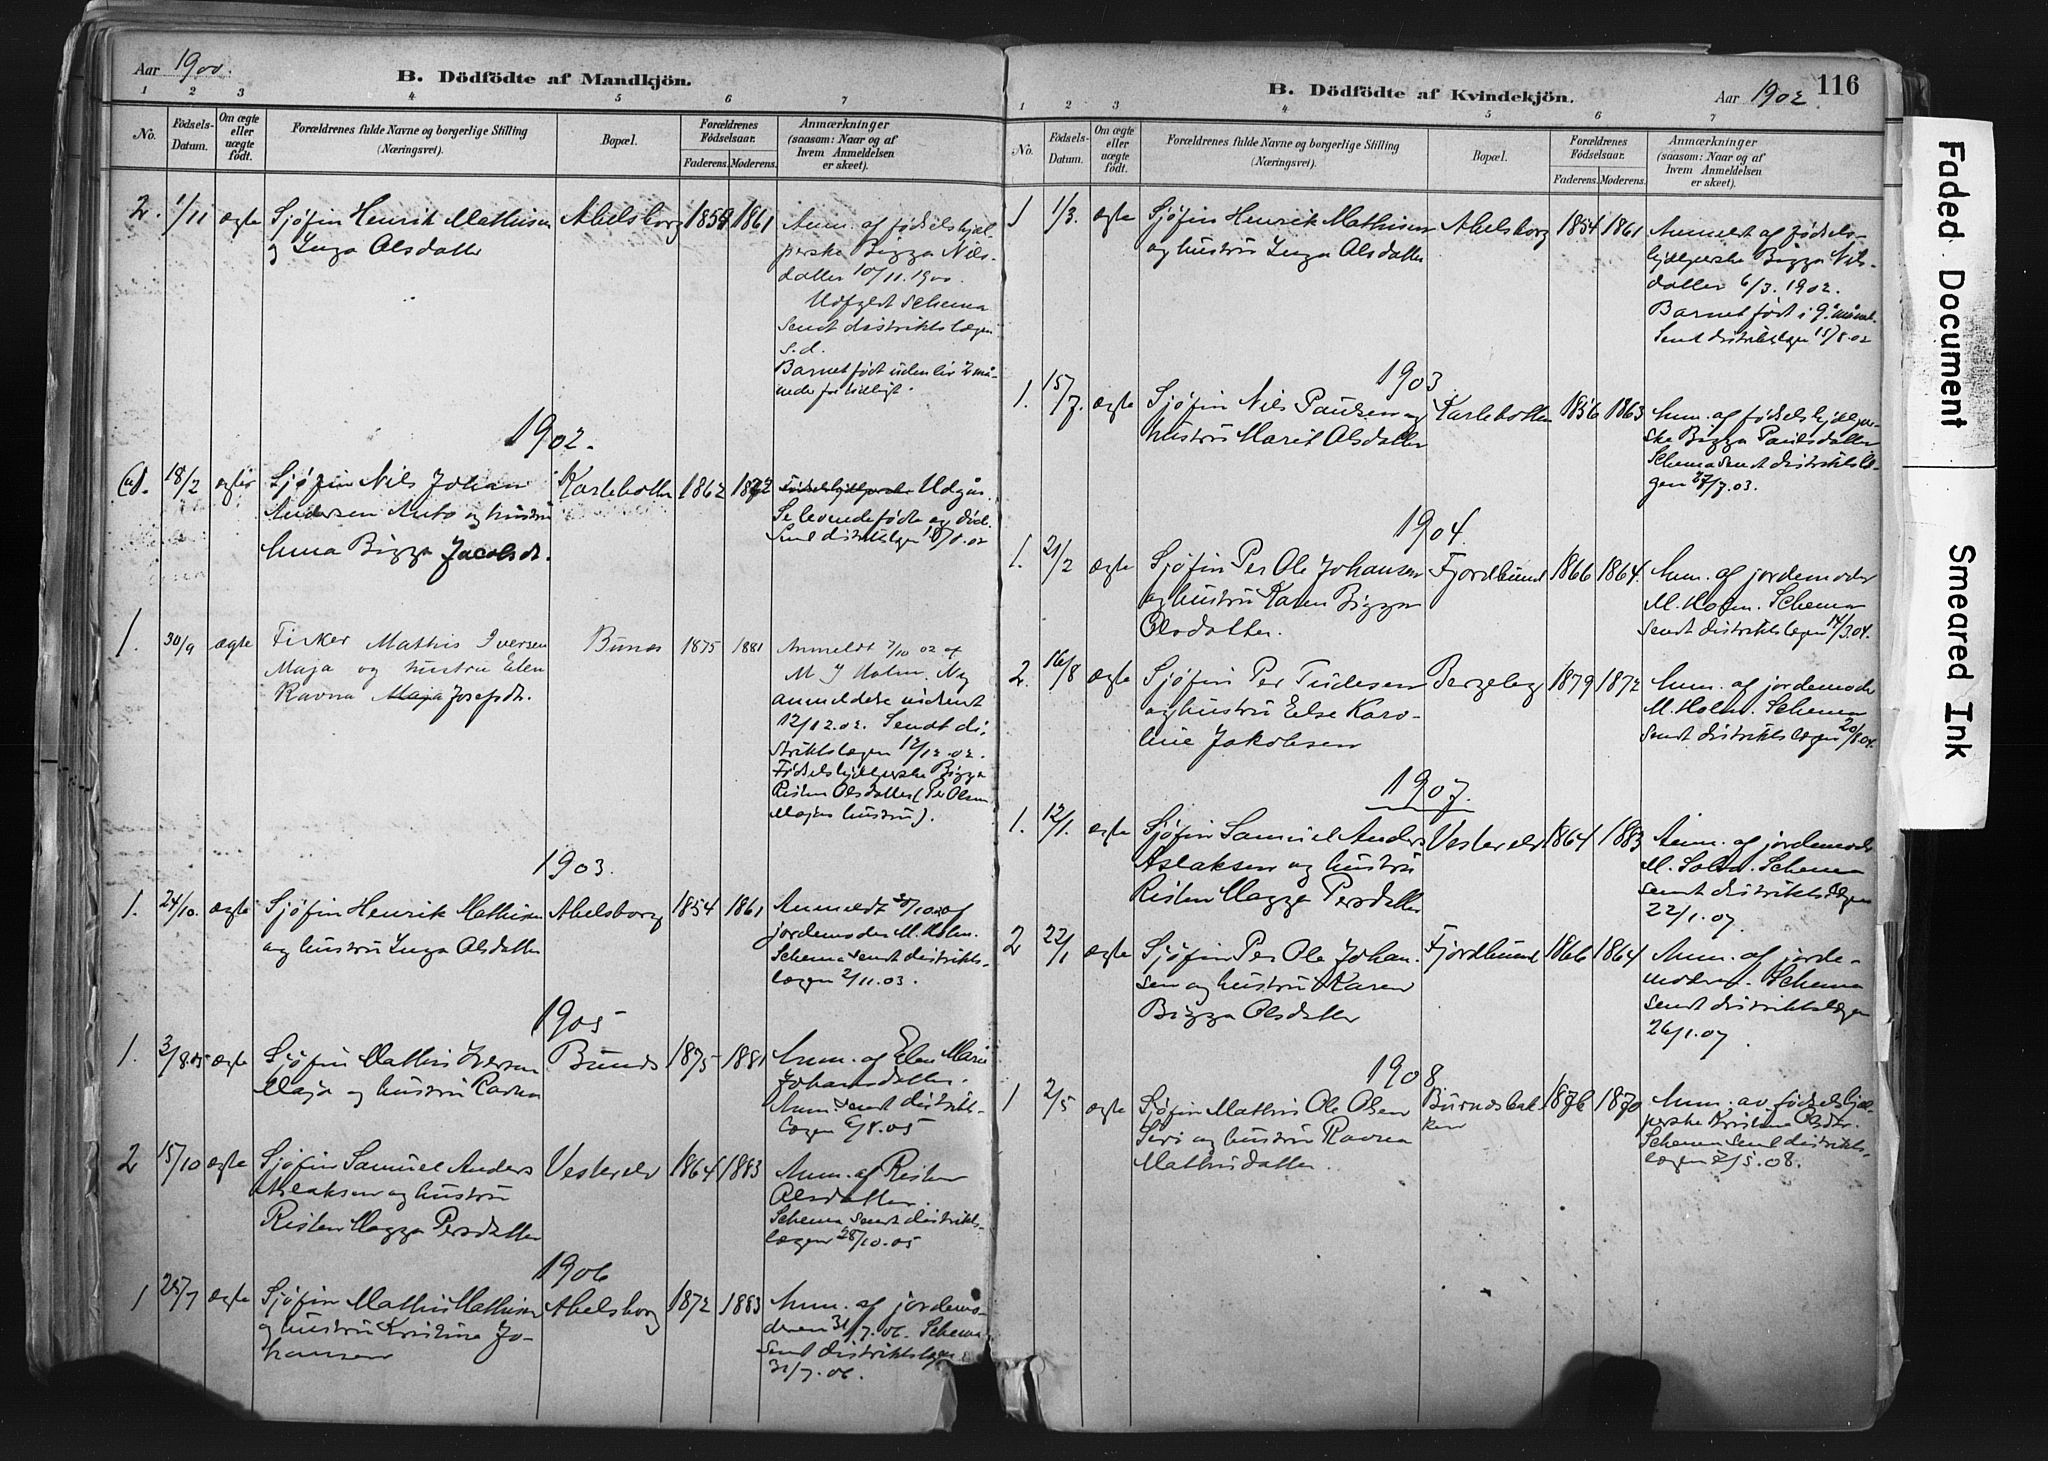 Aar 1900.
B. Dödfödte af Mandkjön.
1 2 3 4 5 6 7
No.
Födsels-
Datum.
Om ægte
eller
uægte
födt.
Forældrenes fulde Navne og borgerlige Stilling
(Næringsvei).
Bopæl.
Forældrenes
Födselsaar.
Faderens. Moderens.
Anmærkninger
(saasom: Naar og af
hvem Anmeldelsen
er skeet).
2. 1/11 ægte Sjøfin Henrik Mathisen Abelsborg 1854 1861
og Inga Olsdatter
Anm. af fødselshjæl-
perske Bigga Nils-
datter 10/11.1900.
Udfyldt schema
sendt distriktslægen
s.d.
Barnet født uden liv 2 må-
neder for tidligt.
1902.
18/2 Sjøfin Nils Johan Karlebotten 1862 1872
Andersen Anto og hustru
Anna Bigga Jacobsdt.
Fødselshjelperske Udgår.
Se levende fødte og død.
Sendt distriktslægen 15/8.02
1. 30/9 ægte Fisker Mathis Iversen Bunæs 1875 1881
Maja og hustru Elen
Ravna Maja Josefsdt.
Anmeldt 7/10 02 af
M J Holm. Ny
anmeldelse indsent
12/12.02. Sendt di-
striktslægen 12/12.02.
Fødselshjelperske Bigga
Risten Olsdatter (Per Olsen
Majas hustru).
1903.
1. 24/10. ægte Sjøfin Henrik Mathisen Abelsborg 1854 1861
og hustru Inga Olsdatter
Anmeldt 30/10 af
jordemoder M. Holm.
Schema sendt distrikts-
lægen 2/11.03.
1905
1. 3/8.05 ægte Sjøfin Mathis Iversen Bunæs 1875 1881
Maja og hustru Ravna
Anm. af Elen Marie
Johansdatter.
Anm. sendt distrikts-
lægen 6/8.05
2 15/10 ægte Sjøfin Samuel Anders Vesterelv 1864 1883
Aslaksen og hustru
Risten Magga Persdatter
Anm. af Risten
Olsdatter.
Schema sendt distrikts-
lægen 28/10.05
1906
1 25/7 ægte Sjøfin Mathis Mathisen Abelsborg 1872 1883
og hustru Kristine Jo-
hansen
Anm. af jordemo-
deren 31/7.06. Schema
sendt distriktslægen
31/7.06.
B. Dödfödte af Kvindekjön.
Aar 1902 116
1 2 3 4 5 6 7
No.
Födsels-
Datum.
Om ægte
eller
uægte
födt.
Forældrenes fulde Navne og borgerlige Stilling
(Næringsvei).
Bopæl.
Forældrenes
Födselsaar.
Faderens. Moderens.
Anmærkninger
(saasom: Naar og af
hvem Anmeldelsen
er skeet).
1 1/3. ægte Sjøfin Henrik Mathisen Abelsborg 1854 1861
og hustru Inga Olsdatter
Anmeldt af fødsels-
hjelperske Bigga Nils-
datter 6/3.1902.
Barnet født i 9. måned.
Sendt distriktslægen 15/8.02
1903
1. 15/7. ægte Sjøfin Nils Paulsen og Karlebotten 1856 1863
hustru Marit Olsdatter
Anm. af fødselshjelper-
ske Bigga Paulsdatter
Schema sendt distriktslæ-
gen 27/7.03.
1904.
1. 21/2 ægte Sjøfin Per Ole Johansen Fjordbund 1866 1864.
og hustru Karen Bigga
Olsdatter.
Anm. af jordemoder
M. Holm. Schema
sendt distriktslægen 14/3.04.
2. 16/8 ægte Sjøfin Per Tudesen Bergeby 1879 1872
og hustru Else Karo-
line Jakobsen
Anm. af jordemoder
M. Holm. Schema
sendt distriktslægen 20/8.04.
1907.
1. 12/1. ægte Sjøfin Samuel Anders Vesterelv 1864 1883
Aslaksen og hustru
Risten Magga Persdatter
Anm. af jordemoder
M. Holm. Schema
sendt distriktslægen
22/1.07.
2 22/1 ægte Sjøfin Per Ole Johan- Fjordbund 1866 1864
sen og hustru Karen
Bigga Olsdatter
Anm. af jorde-
moderen. Schema
sendt distriktslægen
26/1.07.
1908
1 2/5 ægte Sjøfin Mathis Ole Olsen Burnæsbak- 1876 1870
Siri og hustru Ravna ken
Mathisdatter.
Anm. av fødselshjæl-
perske Kristine Olsdtr.
Schema sendt distrikts-
lægen 2/5.08.
Faded Document
Smeared Ink